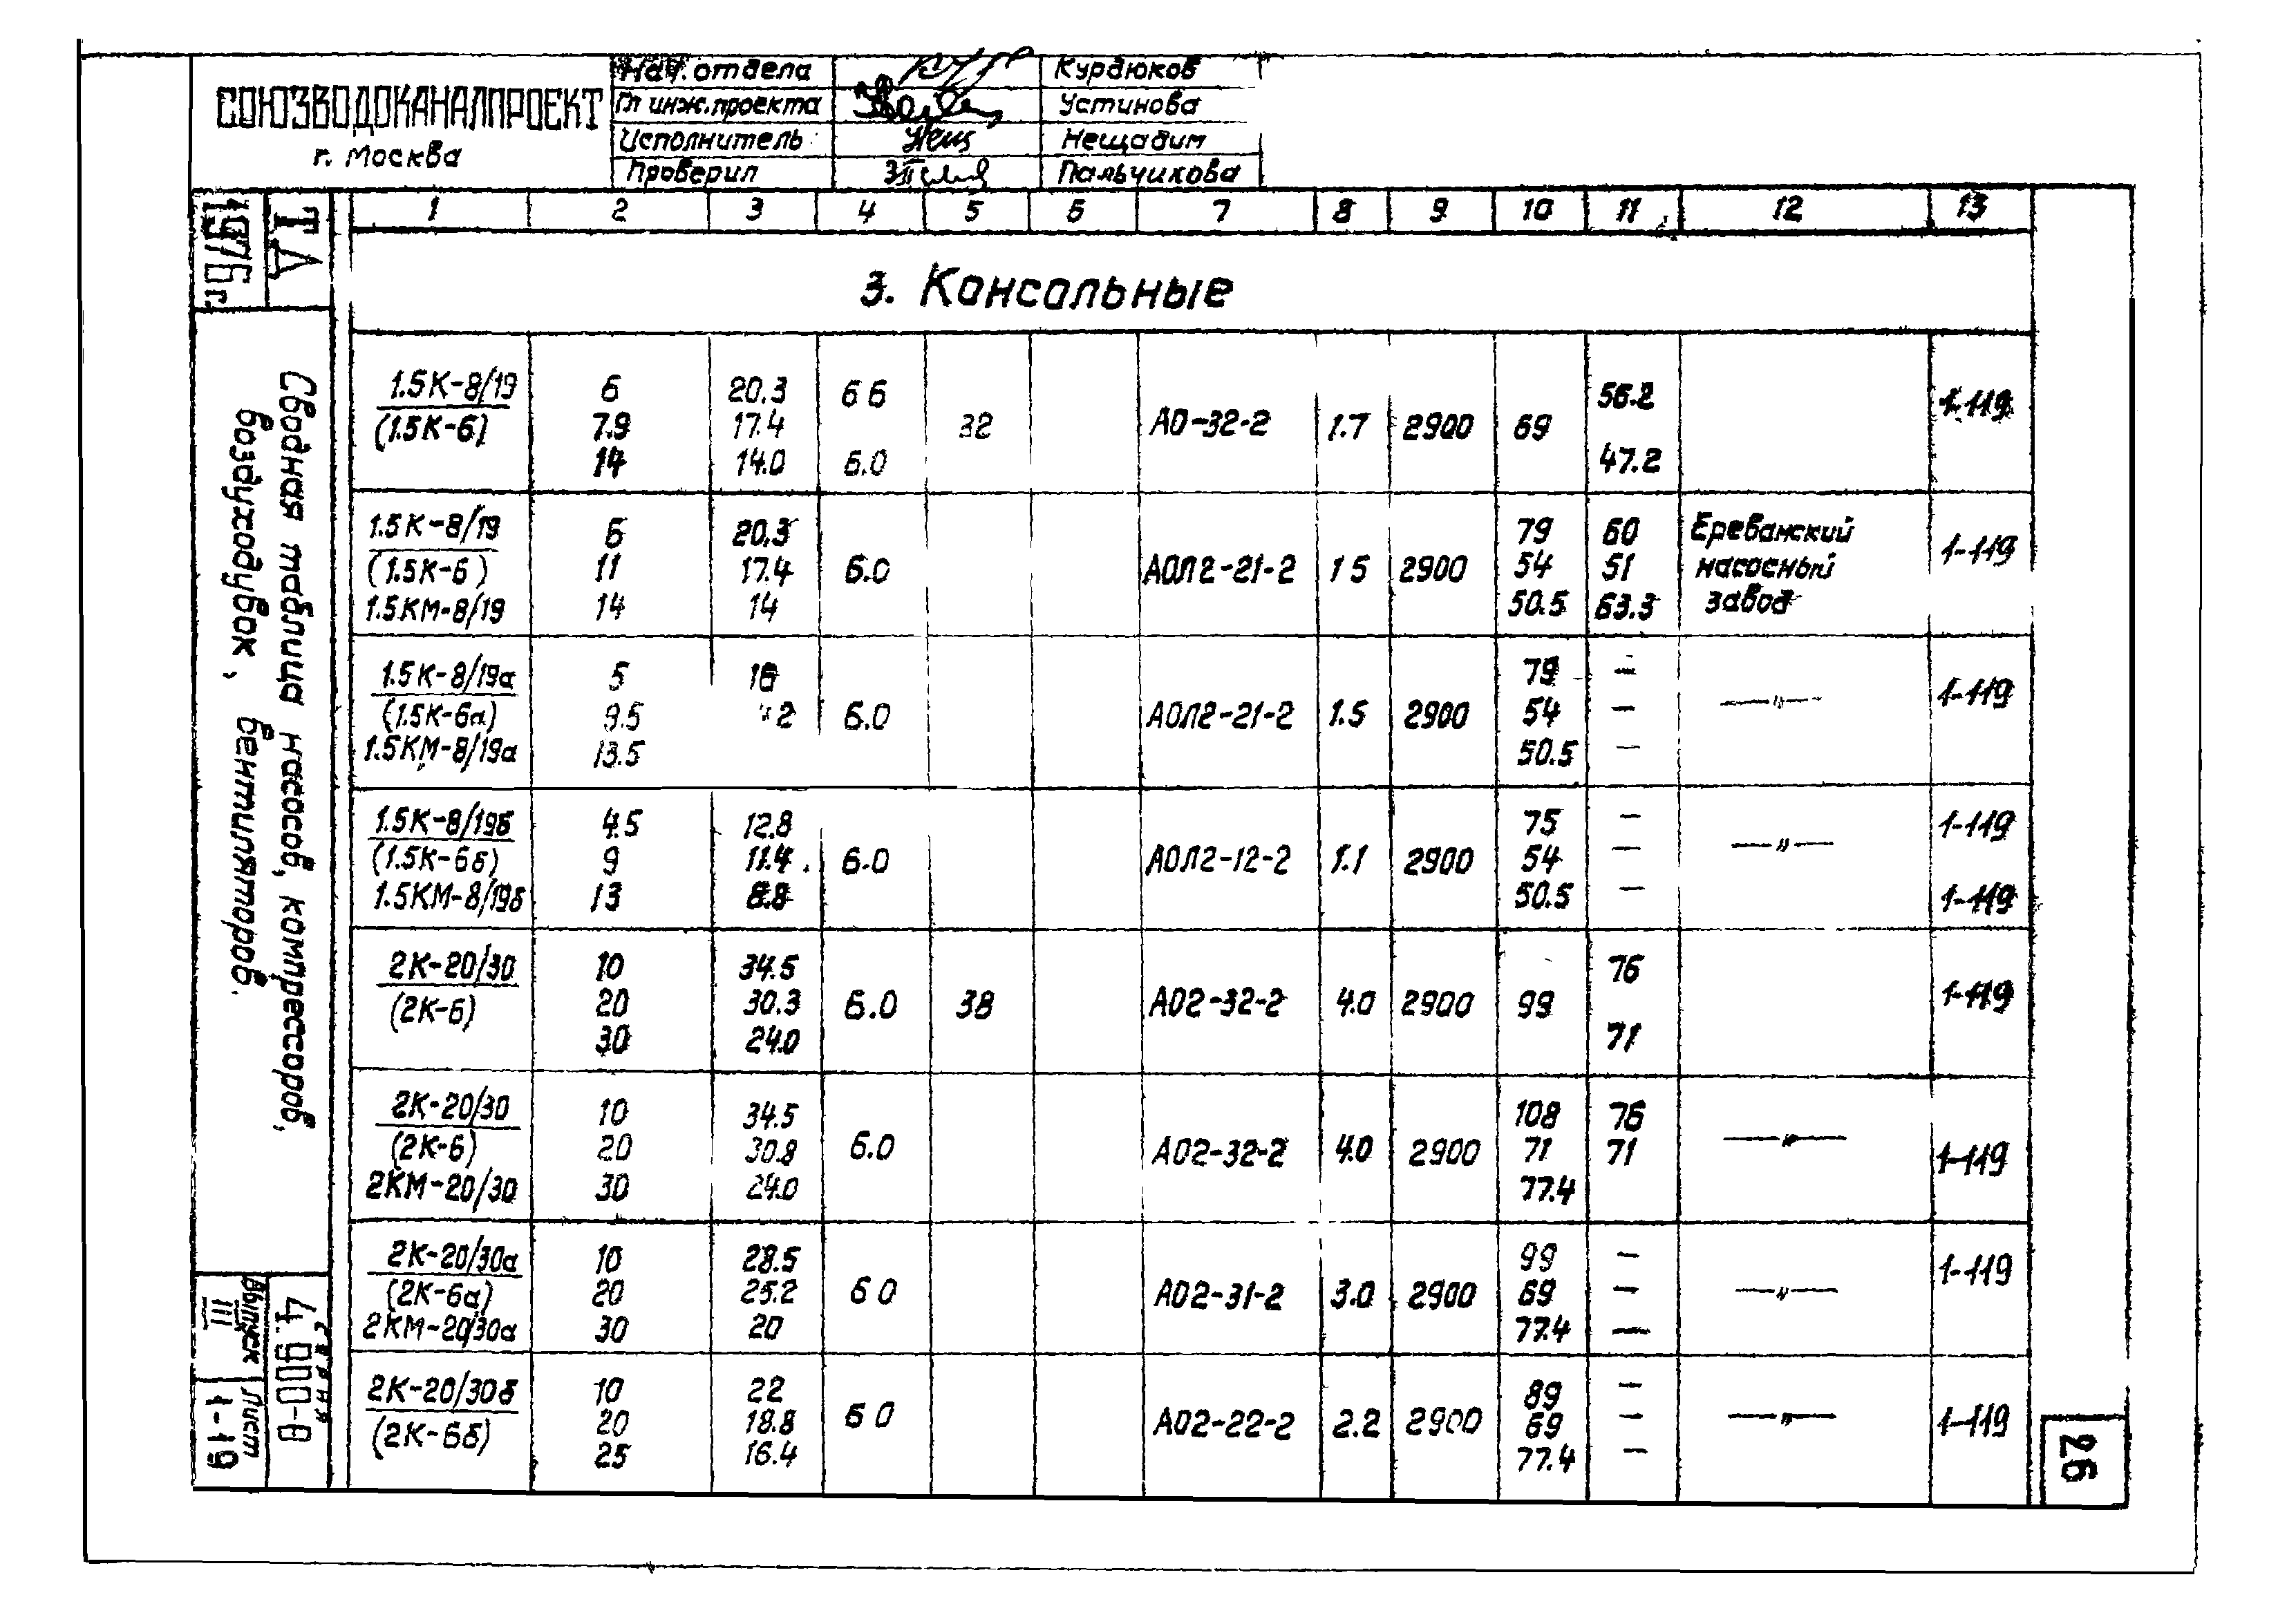 СОЮЗВОДОКАНАЛПРОЕКТ
г. Москва
Нач. отдела Курдюков
Гл инж.проекта Устинова
Исполнитель Нещ Нещадим
Проверил Пальчикова
1 2 3 4 5 6 7 8 9 10 11 12 13
3. Консольные
1.5К-8/19 6 20.3 6 6 56.2 1-119
(1.5К-6) 7.9 17.4 32 АО-32-2 1.7 2900 69
14 14.0 6.0 47.2
1.5К-8/19 6 20.3 79 60 Ереванский
(1.5К-6) 11 17.4 6.0 АОЛ2-21-2 1 5 2900 54 51 насосный 1-119
1.5КМ-8/19 14 14 50.5 63.3 завод
1.5К-8/19а 5 16 79 —
(1.5К-6а) 9.5 6.0 АОЛ2-21-2 1.5 2900 54 — —"— 1-119
1.5КМ-8/19а 13.5 50.5 —
1.5К-8/19б 4.5 12.8 75 — 1-119
(1.5К-6б) 9 11.4 6.0 АОЛ2-12-2 1.1 2900 54 — —"—
1.5КМ-8/19б 13 8.8 50.5 — 1-119
2К-20/30 10 34.5 76
(2К-6) 20 30.3 6.0 38 АО2-32-2 4.0 2900 99 1-119
30 24.0 71
2К-20/30 10 34.5 108 76
(2К-6) 20 30.8 6.0 АО2-32-2 4.0 2900 71 71 —"— 1-119
2КМ-20/30 30 24.0 77.4
2К-20/30а 10 28.5 99 — 1-119
(2К-6а) 20 25.2 6 0 АО2-31-2 3.0 2900 69 — —"—
2КМ-20/30а 30 20 77.4 —
2К-20/30б 10 22 89 —
(2К-6б) 20 18.8 6 0 АО2-22-2 2.2 2900 69 — —"— 1-119
25 16.4 77.4 —
ТД
1976г.
Сводная таблица насосов, компрессоров,
воздуходувок, вентиляторов.
Серия
4.900-8
Выпуск
III
Лист
1-19
26